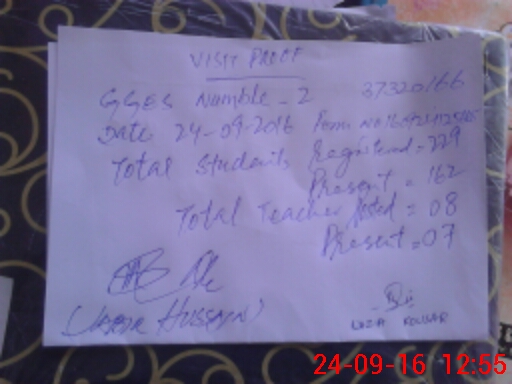 VISIT PROOF
GGES Namble-2 37320166
Date 24-09-2016 Form No
Total Students Registered=229
Present = 162
Total Teacher Posted = 08
Present=07
HUSSAIN)
KOUSAR
24-09-16 12:55